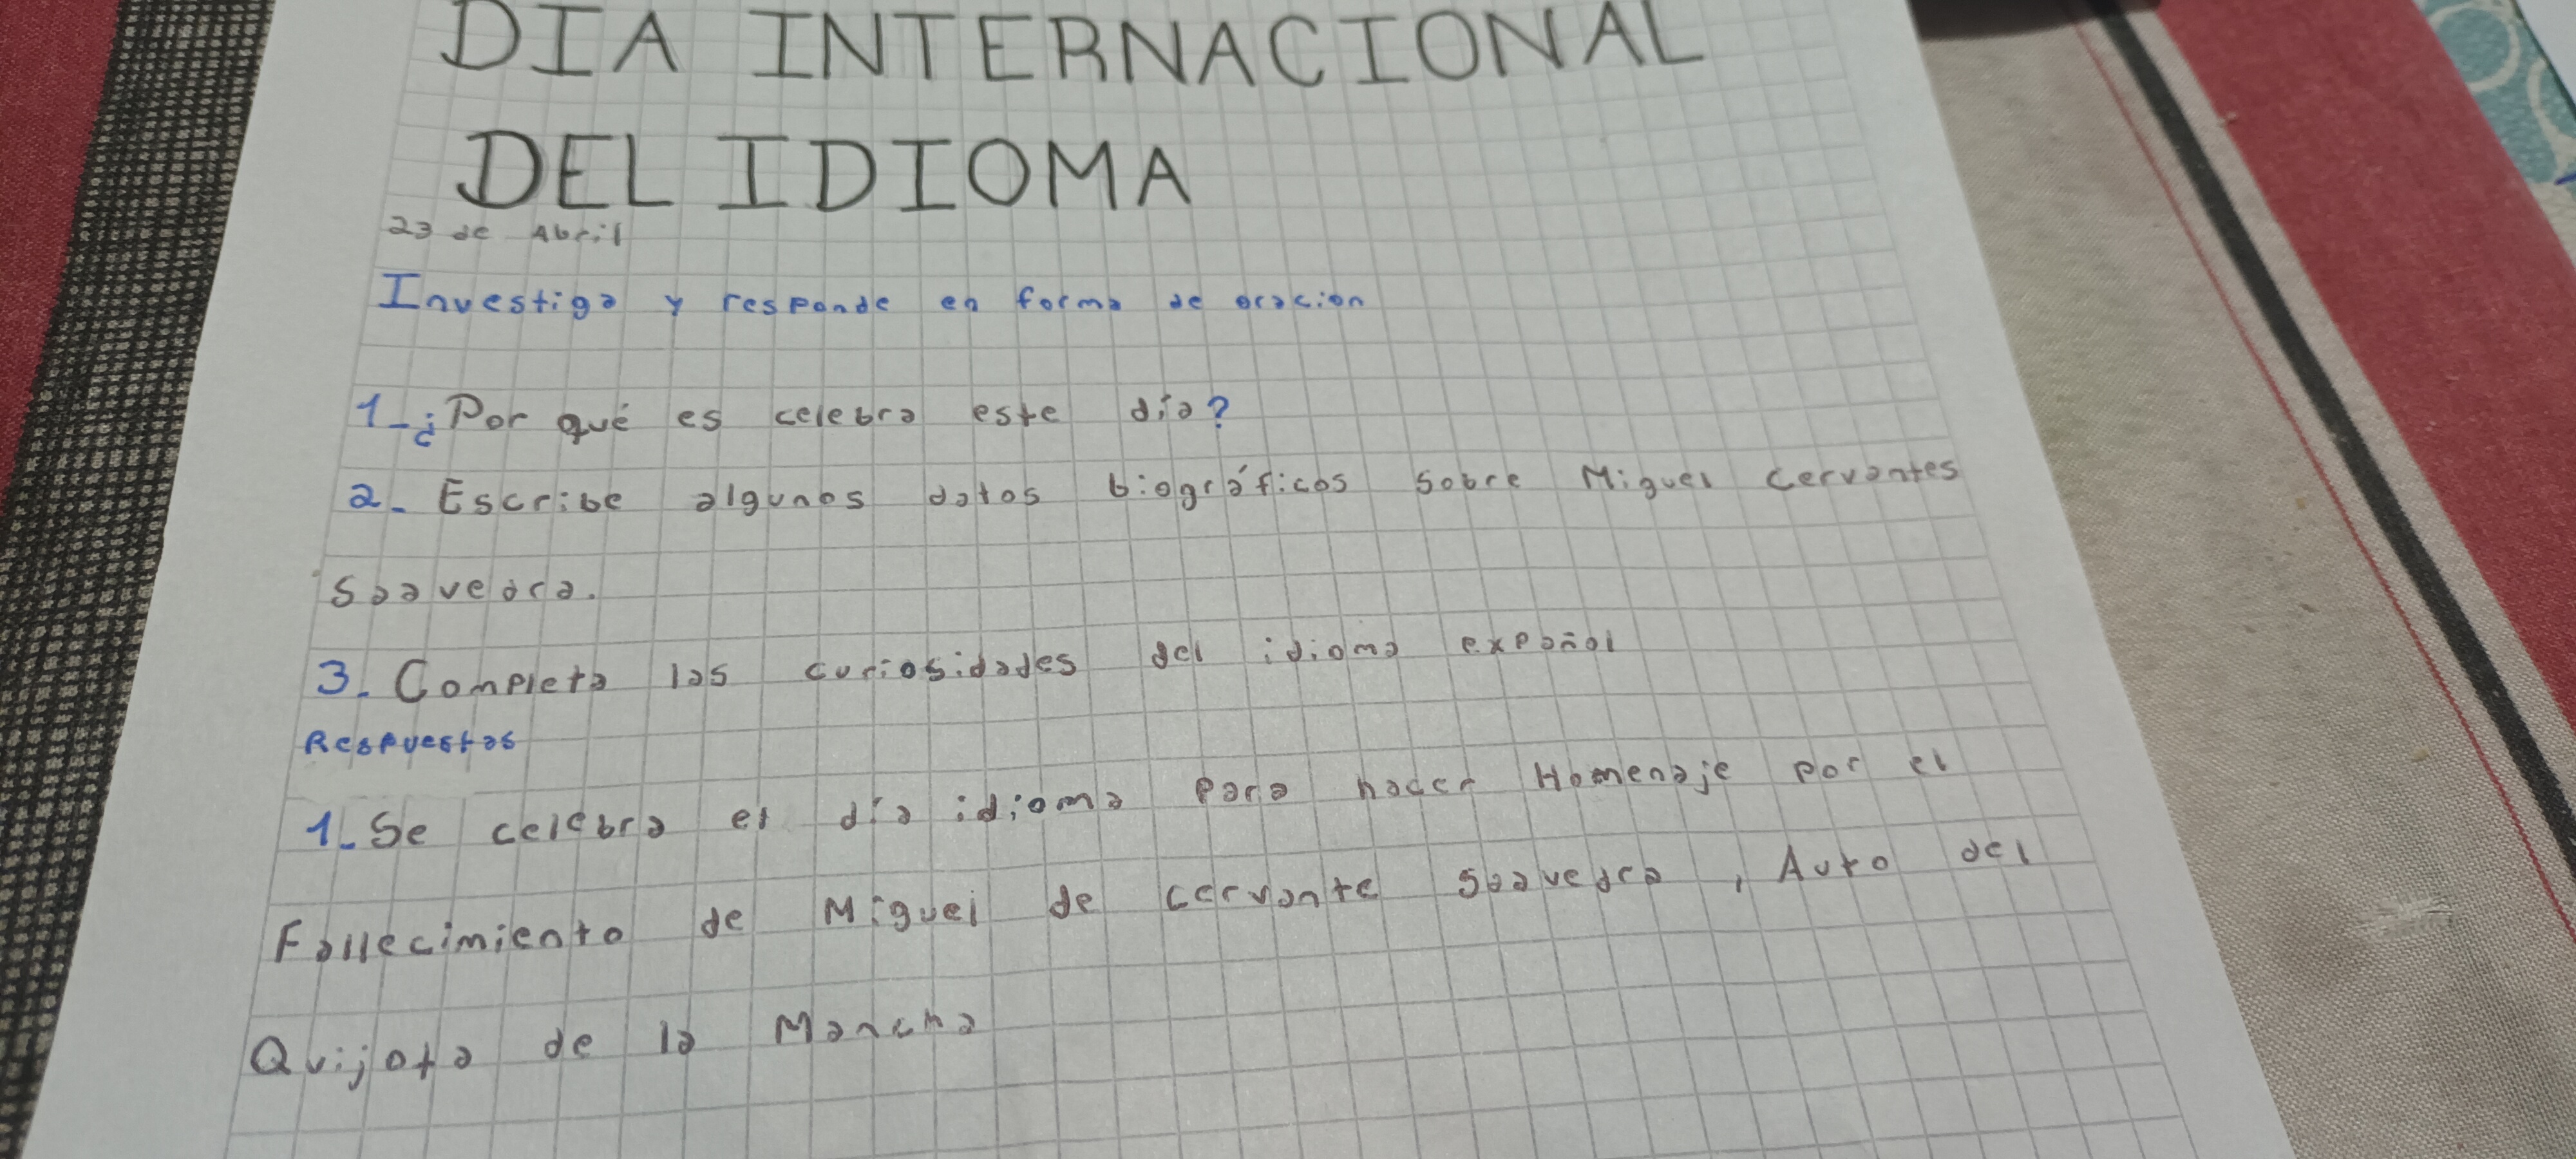 DIA INTERNACIONAL
DEL IDIOMA
23 de Abril
Investiga y responde en forma de oracion
1-¿Por qué es celebra este día?
2- Escribe algunos datos biográficos sobre Miguel Cervantes
Saavedra.
3. Completa las curiosidades del idioma expañol
Respuestas
1- Se celebra el día idioma para hacer Homenaje por el
Fallecimiento de Miguel de cervante saavedra, Auto del
Quijota de la Mancha